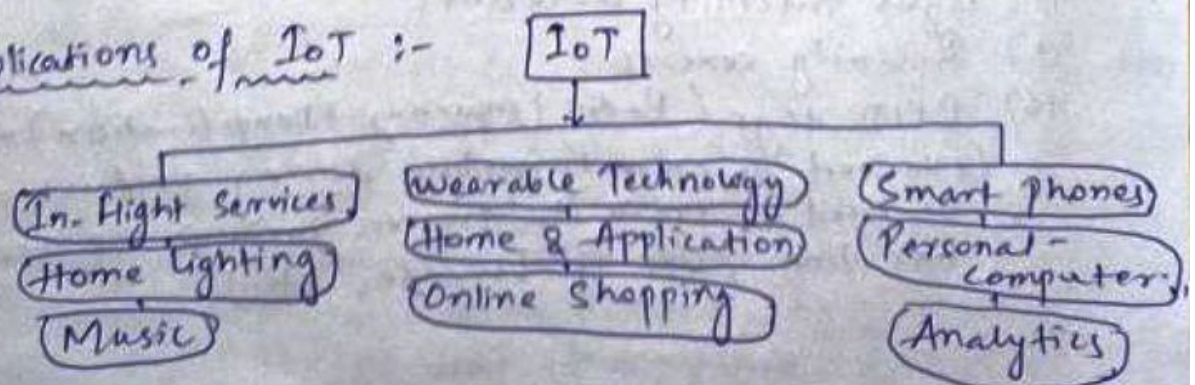 plications of IoT :-
IoT
In-flight Services
Home lighting
Music
Wearable Technology
Home & Application
Online Shopping
Smart phones
Personal-
computer.
Analytics